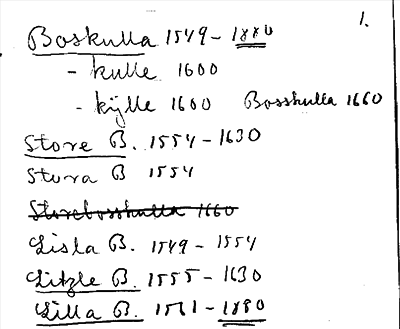 1.
Boskulla 1549 - 1880
- kulle 1600
- kÿlle 1600 Bosskulla 1660
Store B. 1554 - 1630
Stora B 1554
Storebosskulla 1660
Lisla B. 1549 - 1554
Litzle B. 1555 - 1630
Lilla B. 1561 - 1880